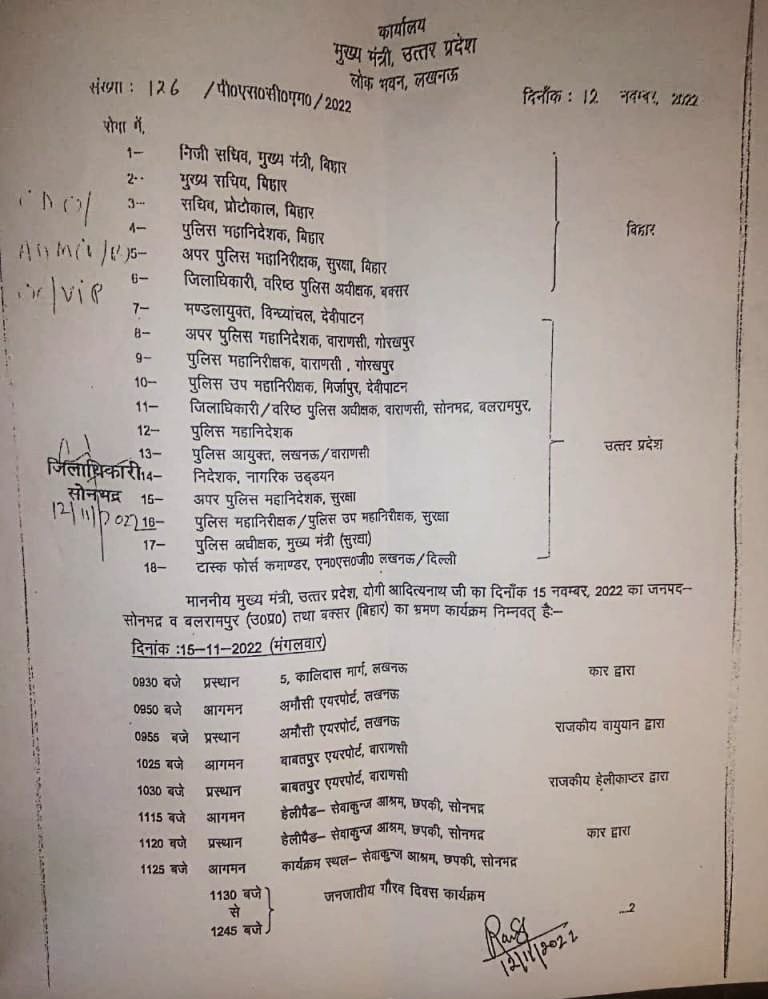 कार्यालय
मुख्य मंत्री, उत्तर प्रदेश
लोक भवन, लखनऊ
संख्या : 126 /पी०एस०सी०एम०/2022
दिनाँक : 12 नवम्बर, 2022
सेवा में,
1- निजी सचिव, मुख्य मंत्री, बिहार
2- मुख्य सचिव, बिहार
3- सचिव, प्रोटोकाल, बिहार
4- पुलिस महानिदेशक, बिहार
5- अपर पुलिस महानिरीक्षक, सुरक्षा, बिहार
6- जिलाधिकारी, वरिष्ठ पुलिस अधीक्षक, बक्सर
बिहार
7- मण्डलायुक्त, विन्ध्यांचल, देवीपाटन
8- अपर पुलिस महानिदेशक, वाराणसी, गोरखपुर
9- पुलिस महानिरीक्षक, वाराणसी , गोरखपुर
10- पुलिस उप महानिरीक्षक, मिर्जापुर, देवीपाटन
11- जिलाधिकारी/वरिष्ठ पुलिस अधीक्षक, वाराणसी, सोनभद्र, बलरामपुर,
12- पुलिस महानिदेशक
13- पुलिस आयुक्त, लखनऊ/वाराणसी
14- निदेशक, नागरिक उड्डयन
15- अपर पुलिस महानिदेशक, सुरक्षा
16- पुलिस महानिरीक्षक/पुलिस उप महानिरीक्षक, सुरक्षा
17- पुलिस अधीक्षक, मुख्य मंत्री (सुरक्षा)
18- टास्क फोर्स कमाण्डर, एन०एस०जी० लखनऊ/दिल्ली
उत्तर प्रदेश
/VIP
जिलाधिकारी
सोनभद्र
12/11/2022
माननीय मुख्य मंत्री, उत्तर प्रदेश, योगी आदित्यनाथ जी का दिनाँक 15 नवम्बर, 2022 का जनपद-
सोनभद्र व बलरामपुर (उ०प्र०) तथा बक्सर (बिहार) का भ्रमण कार्यक्रम निम्नवत् है:-
दिनांक :15-11-2022 (मंगलवार)
0930 बजे प्रस्थान 5, कालिदास मार्ग, लखनऊ कार द्वारा
0950 बजे आगमन अमौसी एयरपोर्ट, लखनऊ
0955 बजे प्रस्थान अमौसी एयरपोर्ट, लखनऊ राजकीय वायुयान द्वारा
1025 बजे आगमन बाबतपुर एयरपोर्ट, वाराणसी
1030 बजे प्रस्थान बाबतपुर एयरपोर्ट, वाराणसी राजकीय हेलीकाप्टर द्वारा
1115 बजे आगमन हेलीपैड- सेवाकुन्ज आश्रम, छपकी, सोनभद्र
1120 बजे प्रस्थान हेलीपैड- सेवाकुन्ज आश्रम, छपकी, सोनभद्र कार द्वारा
1125 बजे आगमन कार्यक्रम स्थल- सेवाकुन्ज आश्रम, छपकी, सोनभद्र
1130 बजे
से
1245 बजे
जनजातीय गौरव दिवस कार्यक्रम
...2
12/11/2022